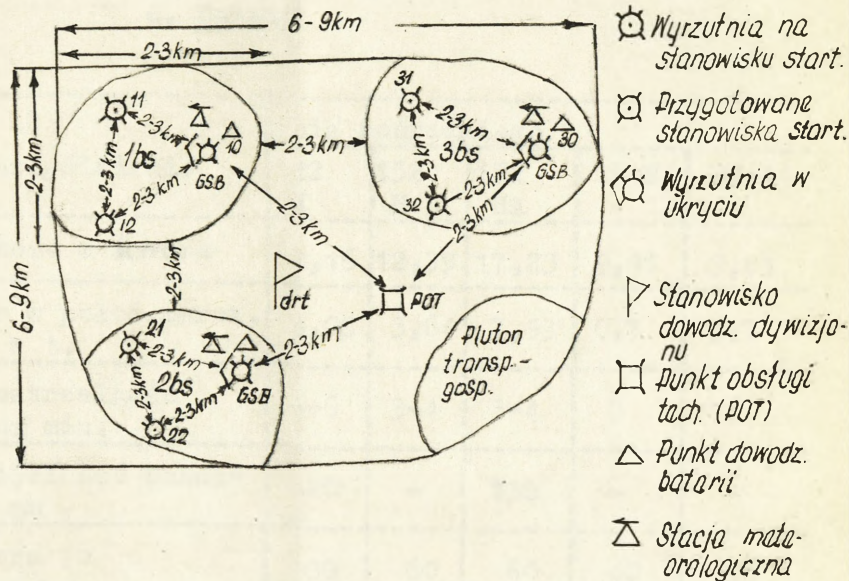 6-9km
2-3km
6-9km
2-3km
11
2-3km
10
1bs
2-3km
GSB
2-3km
12
2-3km
2-3km
31
2-3km
3bs
30
2-3km
GSB
32
2-3km
2-3km
2-3km
drt
POT
2-3km
21
2-3km
2bs
2-3km
GSB
2-3km
22
Pluton
transp.-
gosp.
Wyrzutnia na
stanowisku start.
Przygotowane
stanowiska start.
Wyrzutnia w
ukryciu
Stanowisko
dowodz. dywizjo-
nu
Punkt obsługi
tech. (POT)
Punkt dowodz.
baterii
Stacja mete-
orologiczna